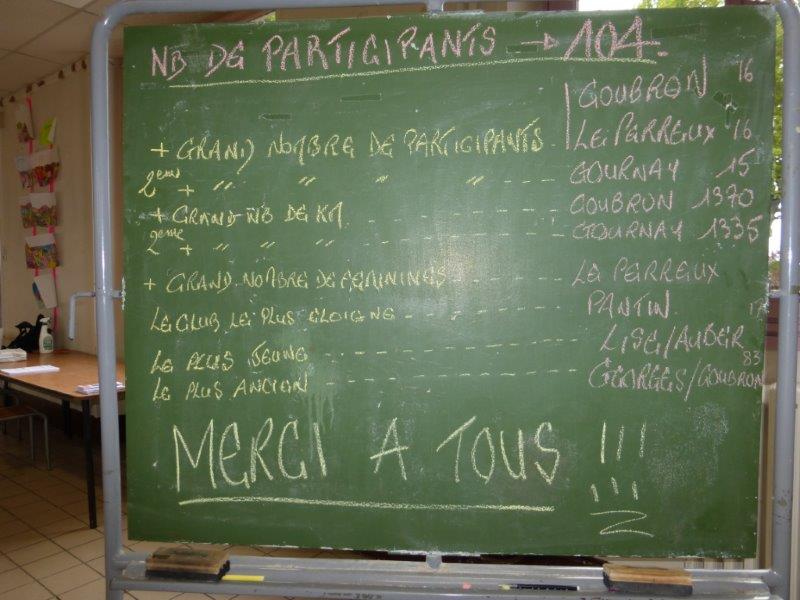 NB DE PARTICIPANTS → 104.
COUBRON 16
+ GRAND NOMBRE DE PARTICIPANTS LE PERREUX 16
2eme + " " " " GOURNAY 15
+ GRAND NB DE KM COUBRON 1370
2eme + " " " GOURNAY 1335
+ GRAND NOMBRE DE FEMININES LE PERREUX
LE CLUB LE PLUS ELOIGNE PANTIN
17
LE PLUS JEUNE LISE/AUBER
83
LE PLUS ANCIEN GEORGES/COUBRON
MERCI A TOUS !!!
!!!